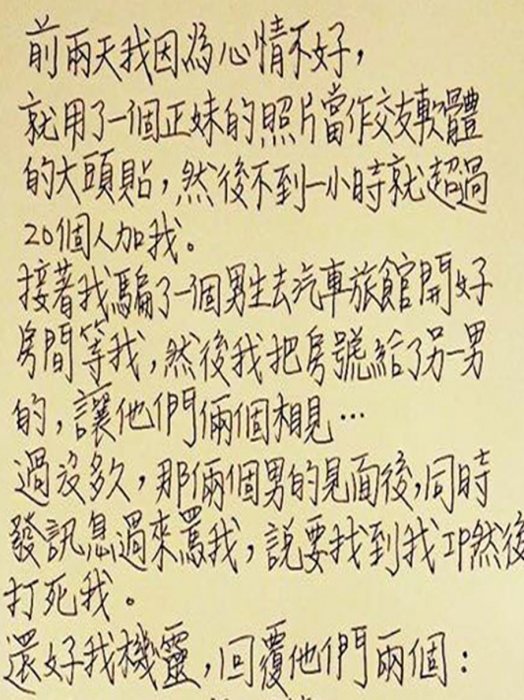 前兩天我因為心情不好，
就用了一個正妹的照片當作交友軟體
的大頭貼，然後不到一小時就超過
20個人加我。
接著我騙了一個男生去汽車旅館開好
房間等我，然後我把房號給了另一男
的，讓他們倆個相見…
過沒多久，那倆個男的見面後，同時
發訊息過來罵我，說要找到我IP然後
打死我。
還好我機靈，回覆他們兩個：